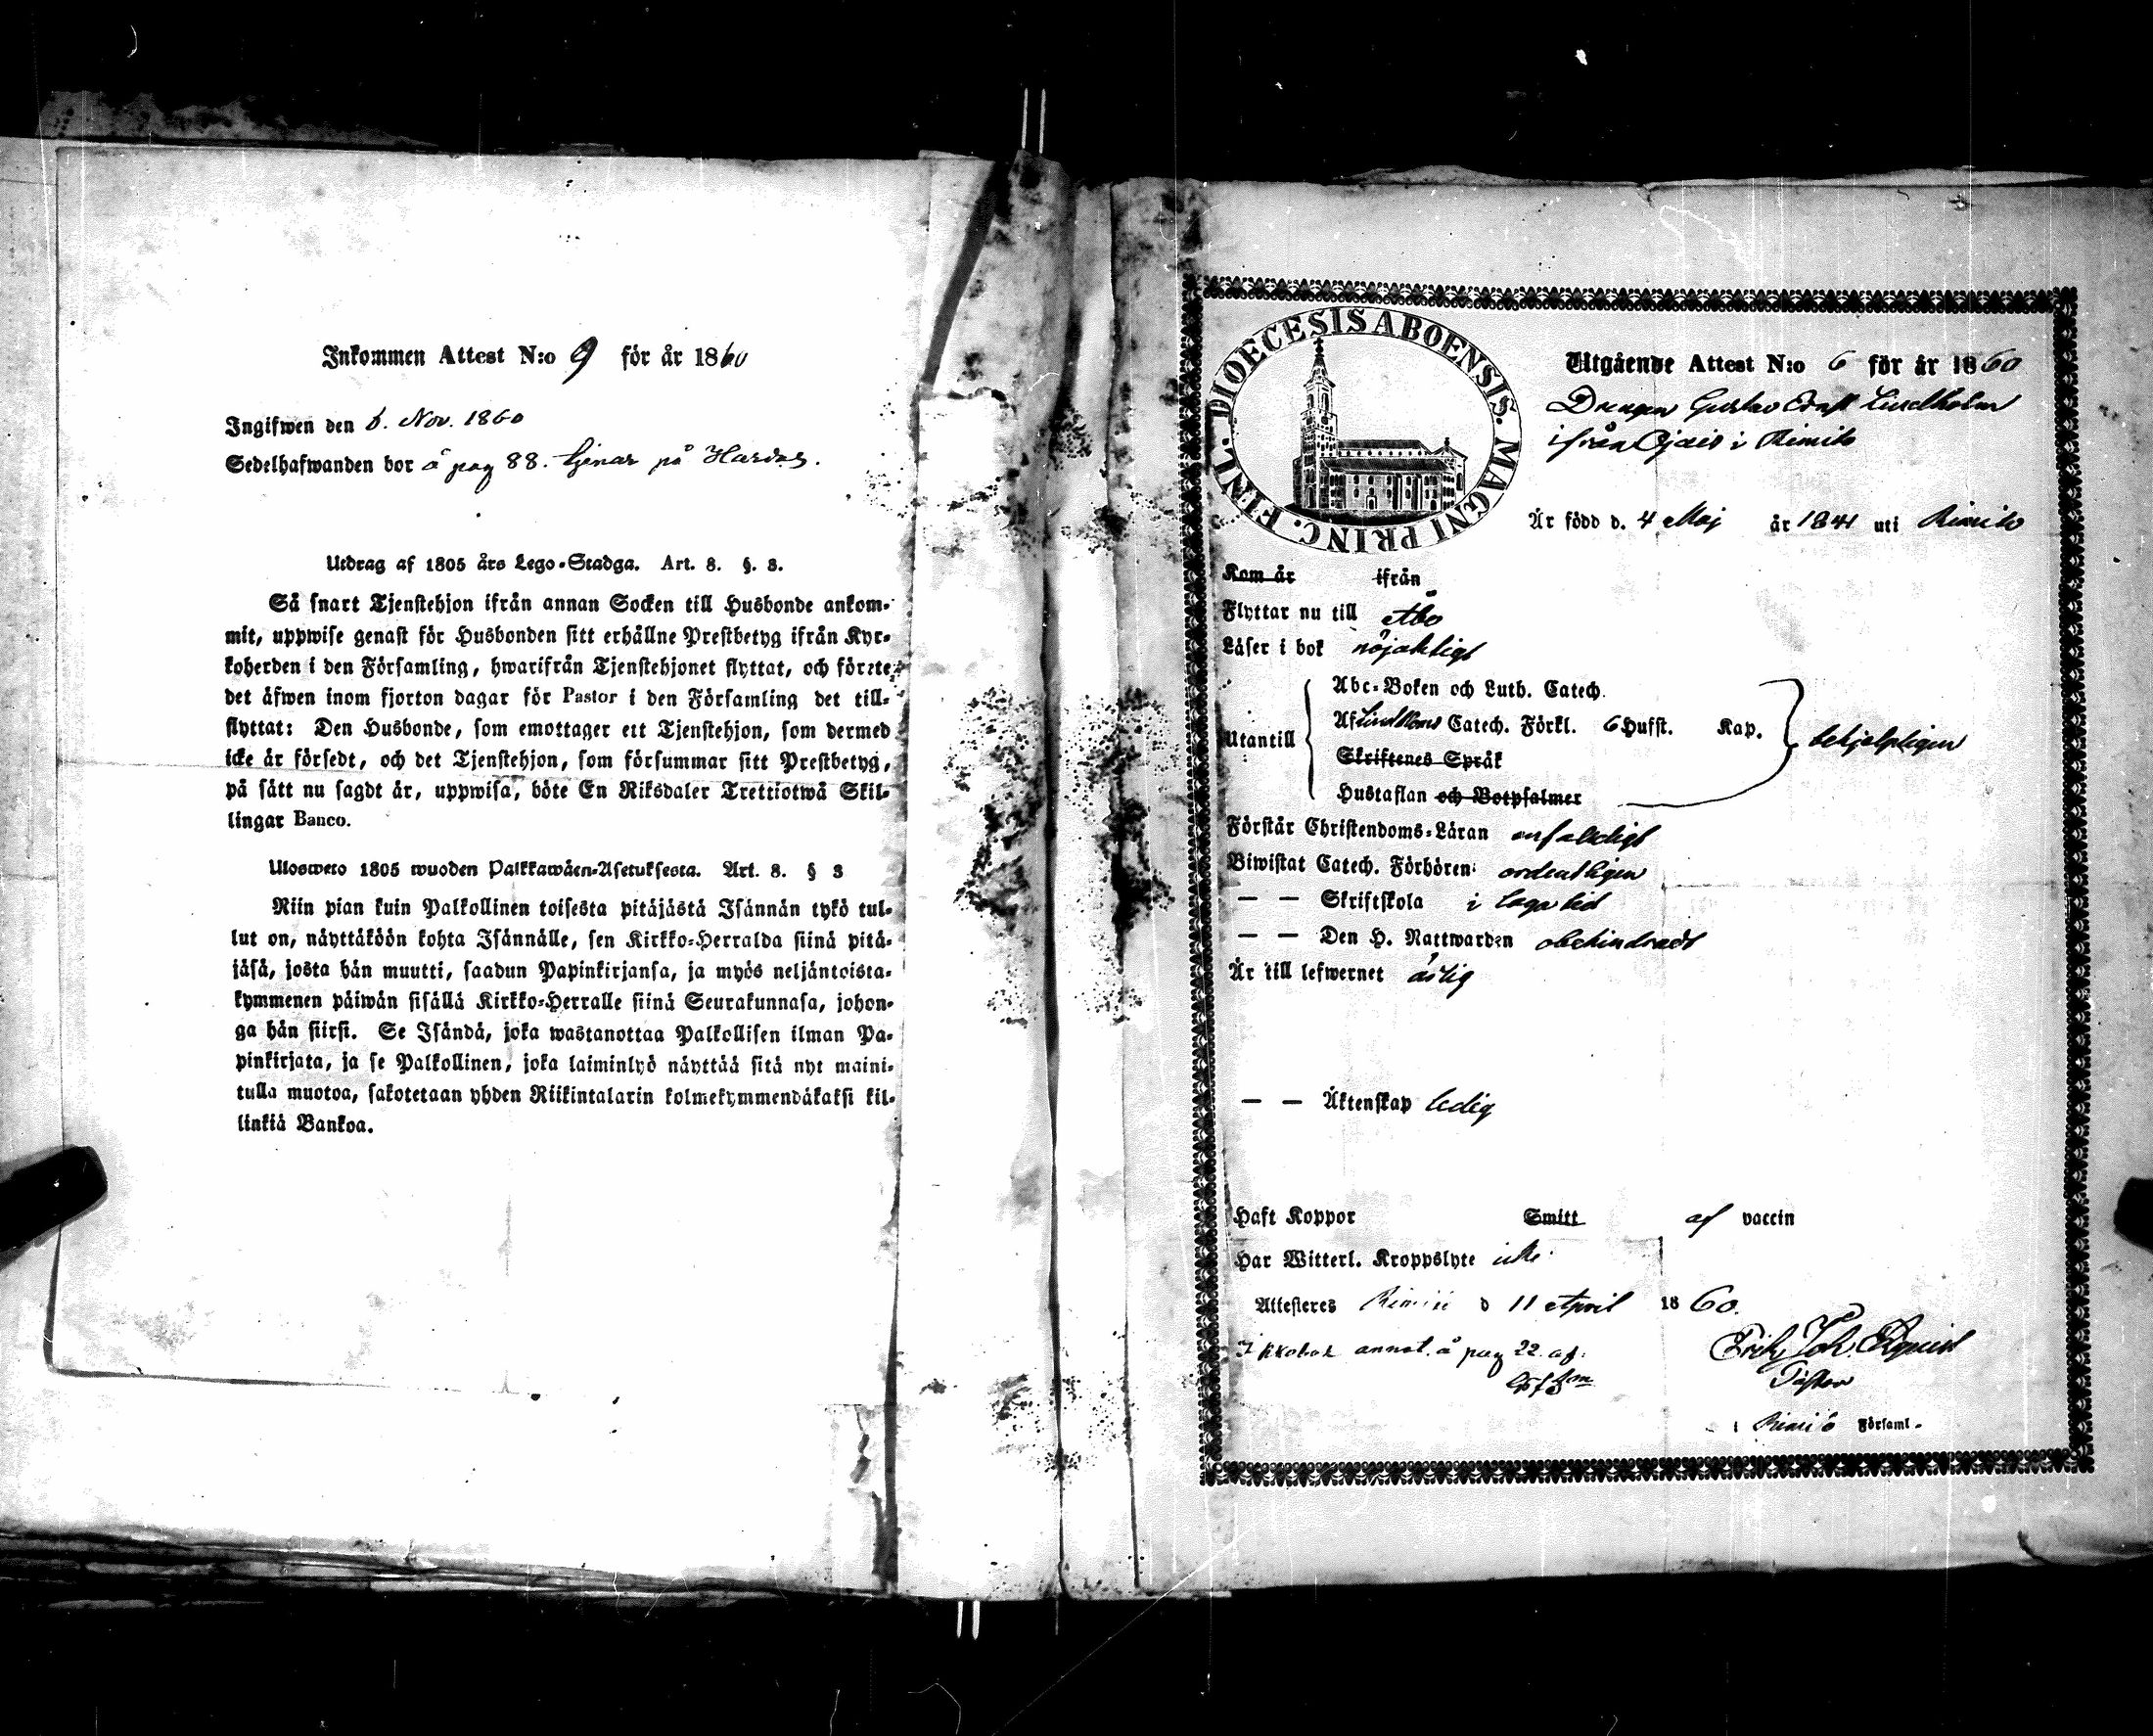 Inkommen Attest N:o 9 för år 1860
Ingifwen den 6. Nov. 1860
Sedelhafwanden bor å pag 88. tjenar på Hardas.
Utdrag af 1805 års Lego-Stadga. Art. 8. §. 3.
Så snart Tjenstehjon ifrån annan Socken till Husbonde ankom-
mit, uppwise genast för Husbonden sitt erhållne Prestbetyg ifrån Kyr-
koherden i den Församling, hwarifrån Tjenstehjonet flyttat, och förete
det äfwen inom fjorton dagar för Pastor i den Församling det till-
flyttat: Den Husbonde, som emottager ett Tjenstehjon, som dermed
icke är försedt, och det Tjenstehjon, som försummar sitt Prestbetyg,
på sätt nu sagdt är, uppwisa, böte En Riksdaler Trettiotwå Skil-
lingar Banco.
Ulosweto 1805 wuoden Palkkawäen-Asetuksesta. Art. 8. § 3
Niin pian kuin Palkollinen toisesta pitäjästä Isännän tykö tul-
lut on, näyttäköön kohta Isännälle, sen Kirkko-Herralda siinä pitä-
jäsä, josta hän muutti, saadun Papinkirjansa, ja myös neljäntoista-
kymmenen päiwän sisällä Kirkko-Herralle siinä Seurakunnasa, johon-
ga hän siirsi. Se Isändä, joka wastanottaa Palkollisen ilman Pa-
pinkirjata, ja se Palkollinen, joka laiminlyö näyttää sitä nyt maini-
tulla muotoa, sakotetaan yhden Riikintalarin kolmekymmendäkaksi kil-
linkiä Bankoa.
DIOECESIS ABOENSIS. MAGNI PRINC. FINL.
Utgående Attest N:o 6 för år 1860
Drengen Gustav Lindholm
ifrån i Rimito
Är född d. 4 Maj år 1841 uti Rimito
Kom år ifrån
Flyttar nu till Åbo
Läser i bok nöjaktligt
Utantill
Abc-Boken och Luth. Catech.
Af Catech. Förkl. 6 Hufst. Kap.
Skriftenes Språk
Hustaflan och Botpsalmer
behjelpligen
Förstår Christendoms-Läran enfaldigt
Biwistat Catech. Förhören ordentligen
— — Skriftskola i laga tid
— — Den H. Nattwarden obehindradt
Är till lefwernet ärlig
— — Äktenskap ledig
Haft Koppor Smitt af vaccin
Har Witterl. Kroppslyte icke
Attesteres Rimito d 11 April 1860.
annot. å pag 22 af
Pastor
i Rimito Församl.